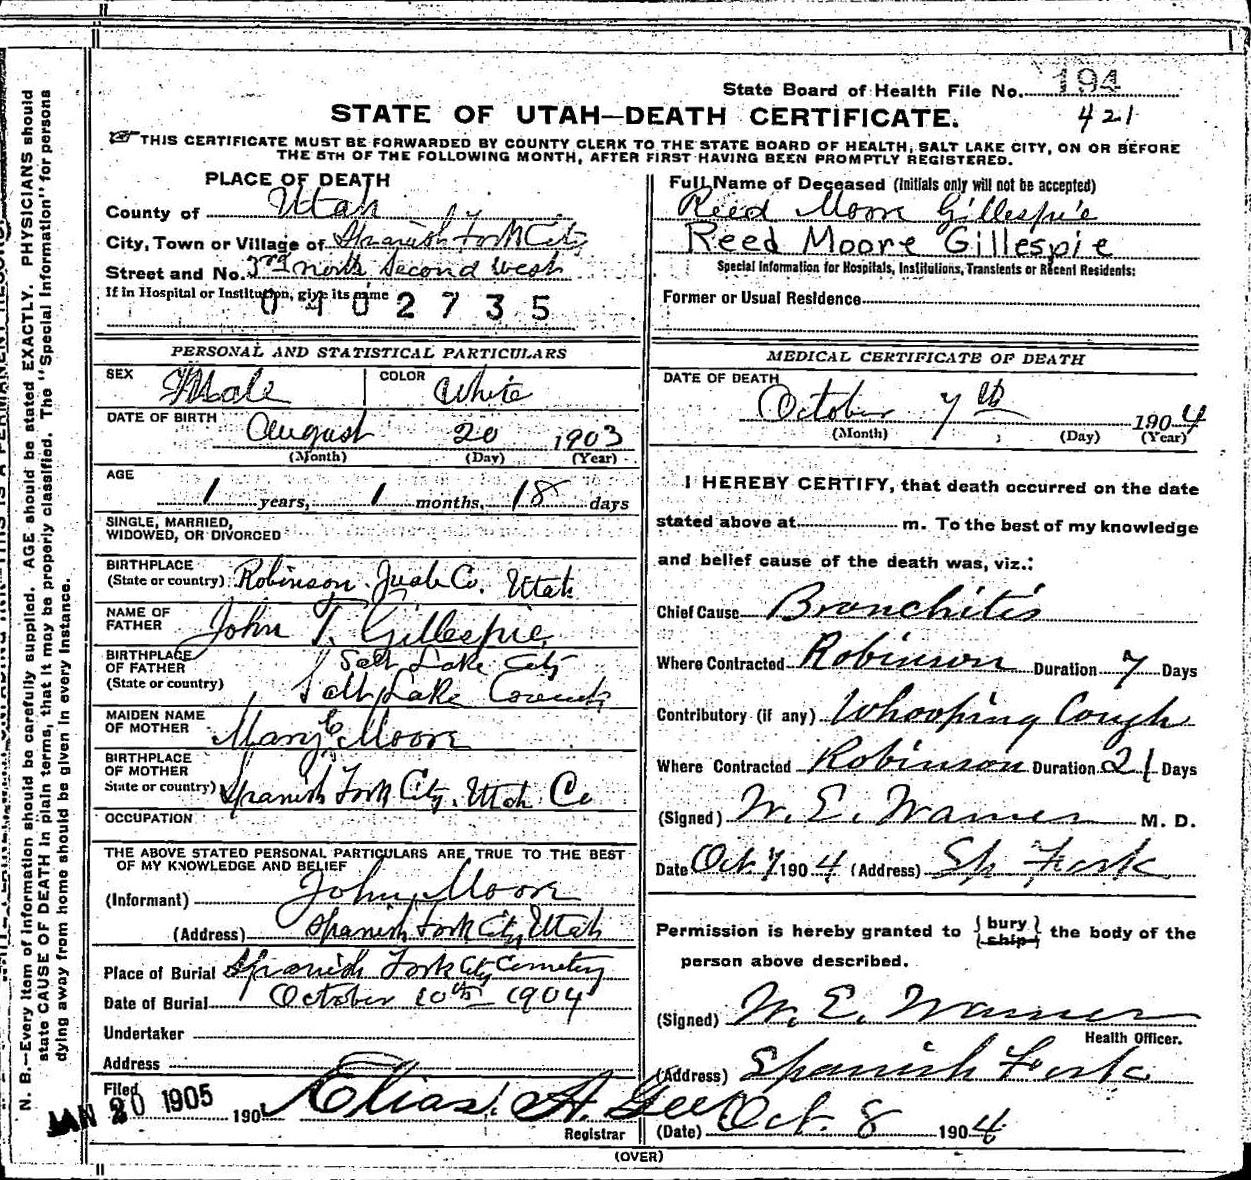 State Board of Health File No. 194
421
STATE OF UTAH—DEATH CERTIFICATE.
☞ THIS CERTIFICATE MUST BE FORWARDED BY COUNTY CLERK TO THE STATE BOARD OF HEALTH, SALT LAKE CITY, ON OR BEFORE
THE 5TH OF THE FOLLOWING MONTH, AFTER FIRST HAVING BEEN PROMPTLY REGISTERED.
PLACE OF DEATH
County of Utah
City, Town or Village of Spanish Fork City
Street and No. 3rd north Second West
If in Hospital or Institution, give its name
0402735
PERSONAL AND STATISTICAL PARTICULARS
SEX Male COLOR White
DATE OF BIRTH August 20 1903
(Month) (Day) (Year)
AGE
1 years, 1 months, 18 days
SINGLE, MARRIED,
WIDOWED, OR DIVORCED
BIRTHPLACE
(State or country) Robinson Juab Co. Utah
NAME OF
FATHER John T. Gillespie
BIRTHPLACE
OF FATHER Salt Lake City
(State or country) Salt Lake County
MAIDEN NAME
OF MOTHER Mary E. Moore
BIRTHPLACE
OF MOTHER
State or country) Spanish Fork City, Utah Co
OCCUPATION
THE ABOVE STATED PERSONAL PARTICULARS ARE TRUE TO THE BEST
OF MY KNOWLEDGE AND BELIEF
(Informant) John Moore
(Address) Spanish Fork City Utah
Place of Burial Spanish Fork City Cemetery
Date of Burial October 10th 1904
Undertaker
Address
Filed
JAN 20 1905 190
Elias A. Gee
Registrar
Full Name of Deceased (Initials only will not be accepted)
Reed Moore Gillespie
Reed Moore Gillespie
Special Information for Hospitals, Institutions, Transients or Recent Residents:
Former or Usual Residence
MEDICAL CERTIFICATE OF DEATH
DATE OF DEATH
October 7th 1904
(Month) (Day) (Year)
I HEREBY CERTIFY, that death occurred on the date
stated above at m. To the best of my knowledge
and belief cause of the death was, viz.:
Chief Cause Bronchitis
Where Contracted Robinson Duration 7 Days
Contributory (if any) Whooping Cough
Where Contracted Robinson Duration 21 Days
(Signed) W. E. Warner M. D.
Date Oct. 7 1904 (Address) Sp Fork
Permission is hereby granted to { bury } the body of the
{ ship }
person above described.
(Signed) W. E. Warner
Health Officer.
(Address) Spanish Fork
(Date) Oct. 8 1904
(OVER)
N. B.—Every item of information should be carefully supplied. AGE should be stated EXACTLY. PHYSICIANS should
state CAUSE OF DEATH in plain terms, that it may be properly classified. The "Special Information" for persons
dying away from home should be given in every instance.